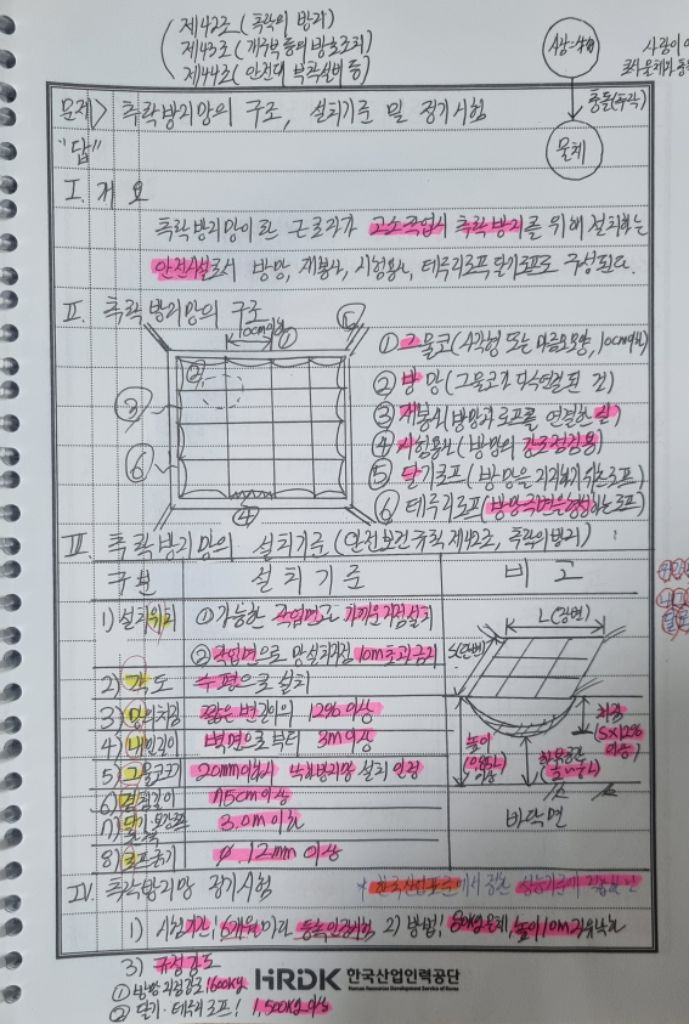 제42조(추락의 방지)
제43조(개구부 등의 방호조치)
제44조(안전대 부착설비 등)
사람이
충돌(추락)
물체
문제> 추락방지망의 구조, 설치기준 및 정기시험
"답"
I. 개 요
추락방지망이란 근로자가 고소작업시 추락방지를 위해 설치하는
안전시설로서 방망, 재봉사, 시험용사, 테두리로프, 달기로프로 구성된다.
II. 추락방지망의 구조
10cm이하 ①
②
③
④
⑤
⑥
① 그물코(사각형 또는 마름모모양, 10cm이하)
② 방망(그물코가 다수연결된 것)
③ 재봉사(방망과 로프를 연결한 실)
④ 시험용사(방망의 강도점검용)
⑤ 달기로프(방망을 지지하기 위한 로프)
⑥ 테두리로프(방망주변을 형성하는 로프)
III. 추락방지망의 설치기준(안전보건규칙 제42조, 추락의 방지)
구분 설치기준 비고
1) 설치위치 ① 가능한 작업면으로 가까운 지점 설치
② 작업면으로 망설치지점 10m초과금지
2) 각도 수평으로 설치
3) 망의처짐 짧은 변길이의 12% 이상
4) 내민길이 벽면으로부터 3m이상
5) 그물코크기 20mm이하시 낙하물방지망 설치 인정
6) 겹침길이 75cm이상
7) 달기·보강로프 3.0m이하
8) 로프굵기 ø.12mm 이상
L(장변)
S(단변)
처짐
(S×12%
이상)
높이
(0.85L)
이상
바닥면
IV. 추락방지망 정기시험 * 한국산업표준에서 정한 성능기준에 적합한 것
1) 시험기간! 6개월마다 등속인장시험 2) 방법! 80kg물체, 높이10m 자유낙하
3) 규정강도
① 방망 지점강도! 600kg
② 달기·테두리로프! 1,500kg 이상
HRDK 한국산업인력공단
Human Resources Development Service of Korea